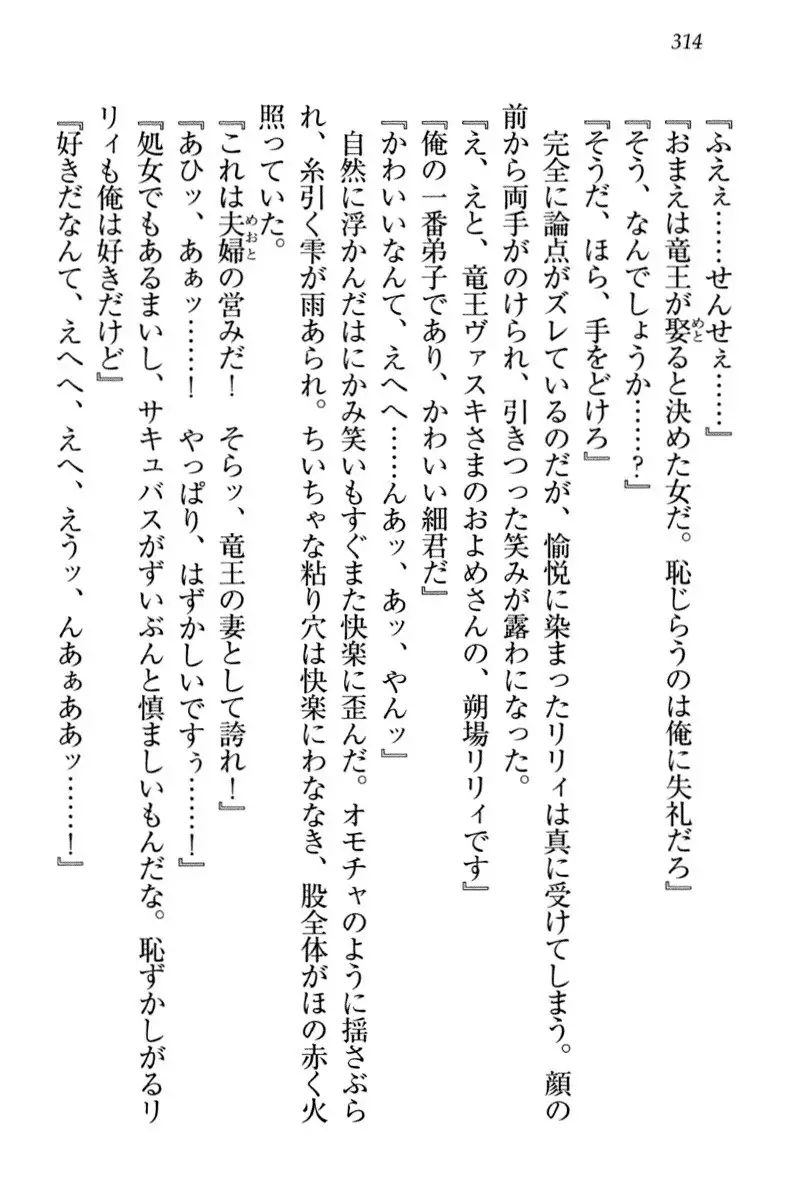 314
『ふえぇ……せんせぇ……』
『おまえは竜王が娶ると決めた女だ。恥じらうのは俺に失礼だろ』
『そう、なんでしょうか……?』
『そうだ、ほら、手をどけろ』
完全に論点がズレているのだが、愉悦に染まったリリィは真に受けてしまう。顔の
前から両手がのけられ、引きつった笑みが露わになった。
『え、えと、竜王ヴァスキさまのおよめさんの、朔場リリィです』
『俺の一番弟子であり、かわいい細君だ』
『かわいいなんて、えへへ……んあッ、あッ、やんッ』
自然に浮かんだはにかみ笑いもすぐまた快楽に歪んだ。オモチャのように揺さぶら
れ、糸引く雫が雨あられ。ちいちゃな粘り穴は快楽にわななき、股全体がほの赤く火
照っていた。
『これは夫婦の営みだ! そらッ、竜王の妻として誇れ!』
『あひッ、あぁッ……! やっぱり、はずかしいですぅ……!』
『処女でもあるまいし、サキュバスがずいぶんと慎ましいもんだな。恥ずかしがるリ
リィも俺は好きだけど』
『好きだなんて、えへへ、えへ、えうッ、んあぁああッ……!』